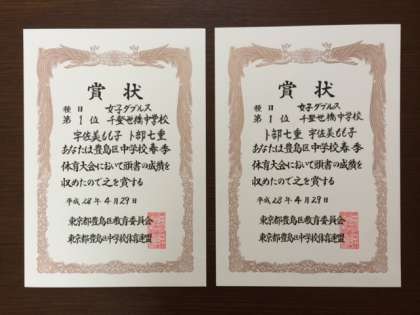 賞状
種目 女子ダブルス
第1位 千登世橋中学校
宇佐美もも子 卜部七重
あなたは豊島区中学校春季
体育大会において頭書の成績を
収めたので之を賞する
平成28年4月29日
東京都豊島区教育委員会
東京都豊島区中学校体育連盟
賞状
種目 女子ダブルス
第1位 千登世橋中学校
卜部七重 宇佐美もも子
あなたは豊島区中学校春季
体育大会において頭書の成績を
収めたので之を賞する
平成28年4月29日
東京都豊島区教育委員会
東京都豊島区中学校体育連盟